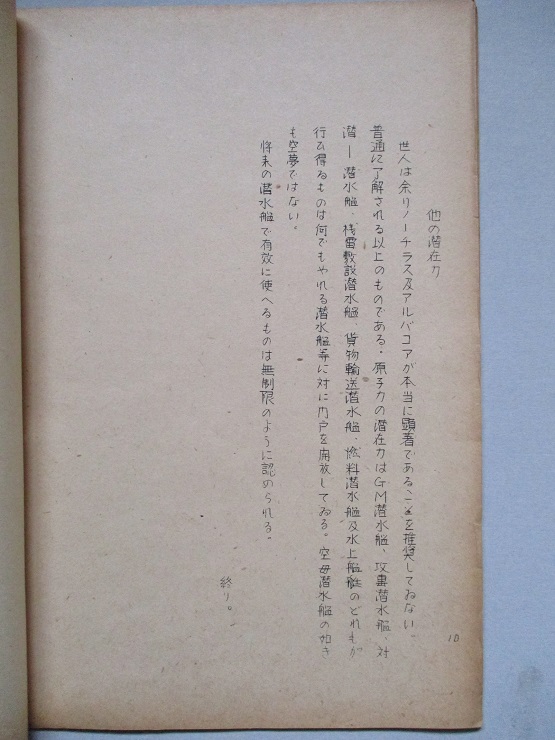 他の潜在力
世人は余りノーチラス及アルバコアが本当に顕著であることを推奨してゐない。
普通に了解される以上のものである。原子力の潜在力はGM潜水艦、攻撃潜水艦、対
潜ー潜水艦、機雷敷設潜水艦、貨物輸送潜水艦、燃料潜水艦及水上艦艇のどれもが
行ひ得るものは何でもやれる潜水艦等に対に門戸を開放してゐる。空母潜水艦の如き
も空夢ではない。
将来の潜水艦で有效に使へるものは無制限のように認められる。
終り。
10